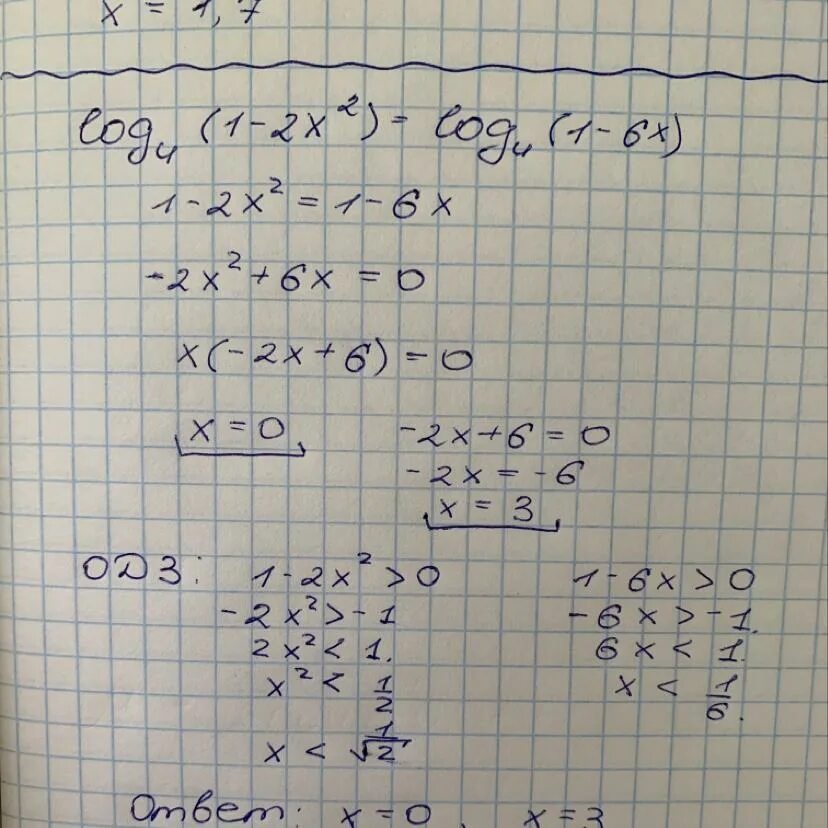 x = 1,7
log₄ (1-2x²) = log₄ (1-6x)
1-2x² = 1-6x
-2x² + 6x = 0
x(-2x+6) = 0
x = 0
-2x+6 = 0
-2x = -6
x = 3
ОДЗ: 1-2x² > 0
-2x² > -1
2x² < 1.
x² < 1/2
x < √1/2
1-6x > 0
-6x > -1.
6x < 1.
x < 1/6.
Ответ: x = 0, x = 3